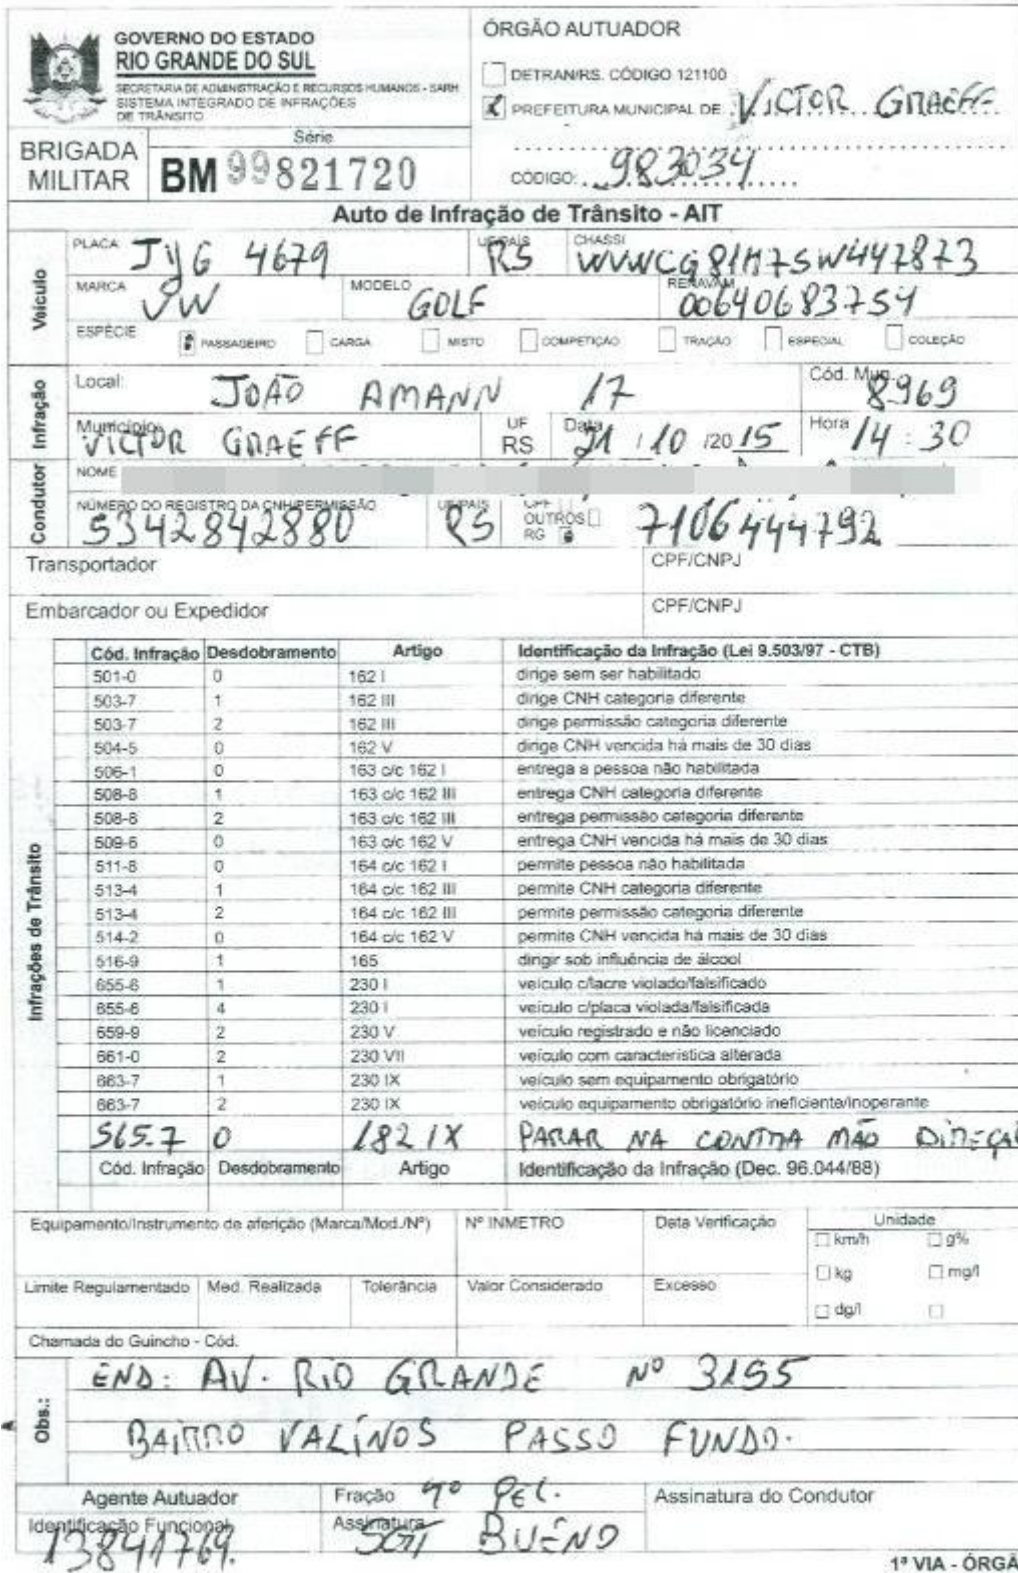 GOVERNO DO ESTADO
RIO GRANDE DO SUL
SECRETARIA DE ADMINISTRAÇÃO E RECURSOS HUMANOS - SARH
SISTEMA INTEGRADO DE INFRAÇÕES
DE TRÂNSITO
ÓRGÃO AUTUADOR
DETRAN/RS. CÓDIGO 121100
PREFEITURA MUNICIPAL DE VICTOR GRAEFF
CODIGO: 983034
BRIGADA
MILITAR
Série
BM 99821720
Auto de Infração de Trânsito - AIT
Veículo
PLACA UF/PAÍS CHASSI
4679 RS
MARCA VW MODELO GOLF RENAVAM 00640683754
ESPÉCIE PASSAGEIRO CARGA MISTO COMPETIÇÃO TRAÇÃO ESPECIAL COLEÇÃO
Infração
Local: JOÃO AMANN 17 Cód. Mun. 8969
Município VICTOR GRAEFF UF RS Data 21/10/2015 Hora 14:30
Condutor
NOME
NÚMERO DO REGISTRO DA CNH/PERMISSÃO UF/PAÍS CPF
5342842880 RS OUTROS 7106444792
RG
Transportador CPF/CNPJ
Embarcador ou Expedidor CPF/CNPJ
Infrações de Trânsito
Cód. Infração Desdobramento Artigo Identificação da Infração (Lei 9.503/97 - CTB)
501-0 0 162 I dirige sem ser habilitado
503-7 1 162 III dirige CNH categoria diferente
503-7 2 162 III dirige permissão categoria diferente
504-5 0 162 V dirige CNH vencida há mais de 30 dias
506-1 0 163 c/c 162 I entrega a pessoa não habilitada
508-8 1 163 c/c 162 III entrega CNH categoria diferente
508-8 2 163 c/c 162 III entrega permissão categoria diferente
509-6 0 163 c/c 162 V entrega CNH vencida há mais de 30 dias
511-8 0 164 c/c 162 I permite pessoa não habilitada
513-4 1 164 c/c 162 III permite CNH categoria diferente
513-4 2 164 c/c 162 III permite permissão categoria diferente
514-2 0 164 c/c 162 V permite CNH vencida há mais de 30 dias
516-9 1 165 dirigir sob influência de álcool
655-6 1 230 I veículo c/lacre violado/falsificado
655-6 4 230 I veículo c/placa violada/falsificada
659-9 2 230 V veículo registrado e não licenciado
661-0 2 230 VII veículo com característica alterada
663-7 1 230 IX veículo sem equipamento obrigatório
663-7 2 230 IX veículo equipamento obrigatório ineficiente/inoperante
565.7 0 182 IX PARAR NA CONTRA MÃO DIREÇÃ
Cód. Infração Desdobramento Artigo Identificação da Infração (Dec. 96.044/88)
Equipamento/Instrumento de aferição (Marca/Mod./Nº) Nº INMETRO Data Verificação Unidade
km/h g%
kg mg/l
dg/l
Limite Regulamentado Med. Realizada Tolerância Valor Considerado Excesso
Chamada do Guincho - Cód.
Obs.:
END: AV. RIO GRANDE Nº 3155
BAIRRO VALÍNOS PASSO FUNDO.
Agente Autuador Fração PEL. Assinatura do Condutor
Identificação Funcional Assinatura SGT BUENO
13841769.
1ª VIA - ÓRGÃ